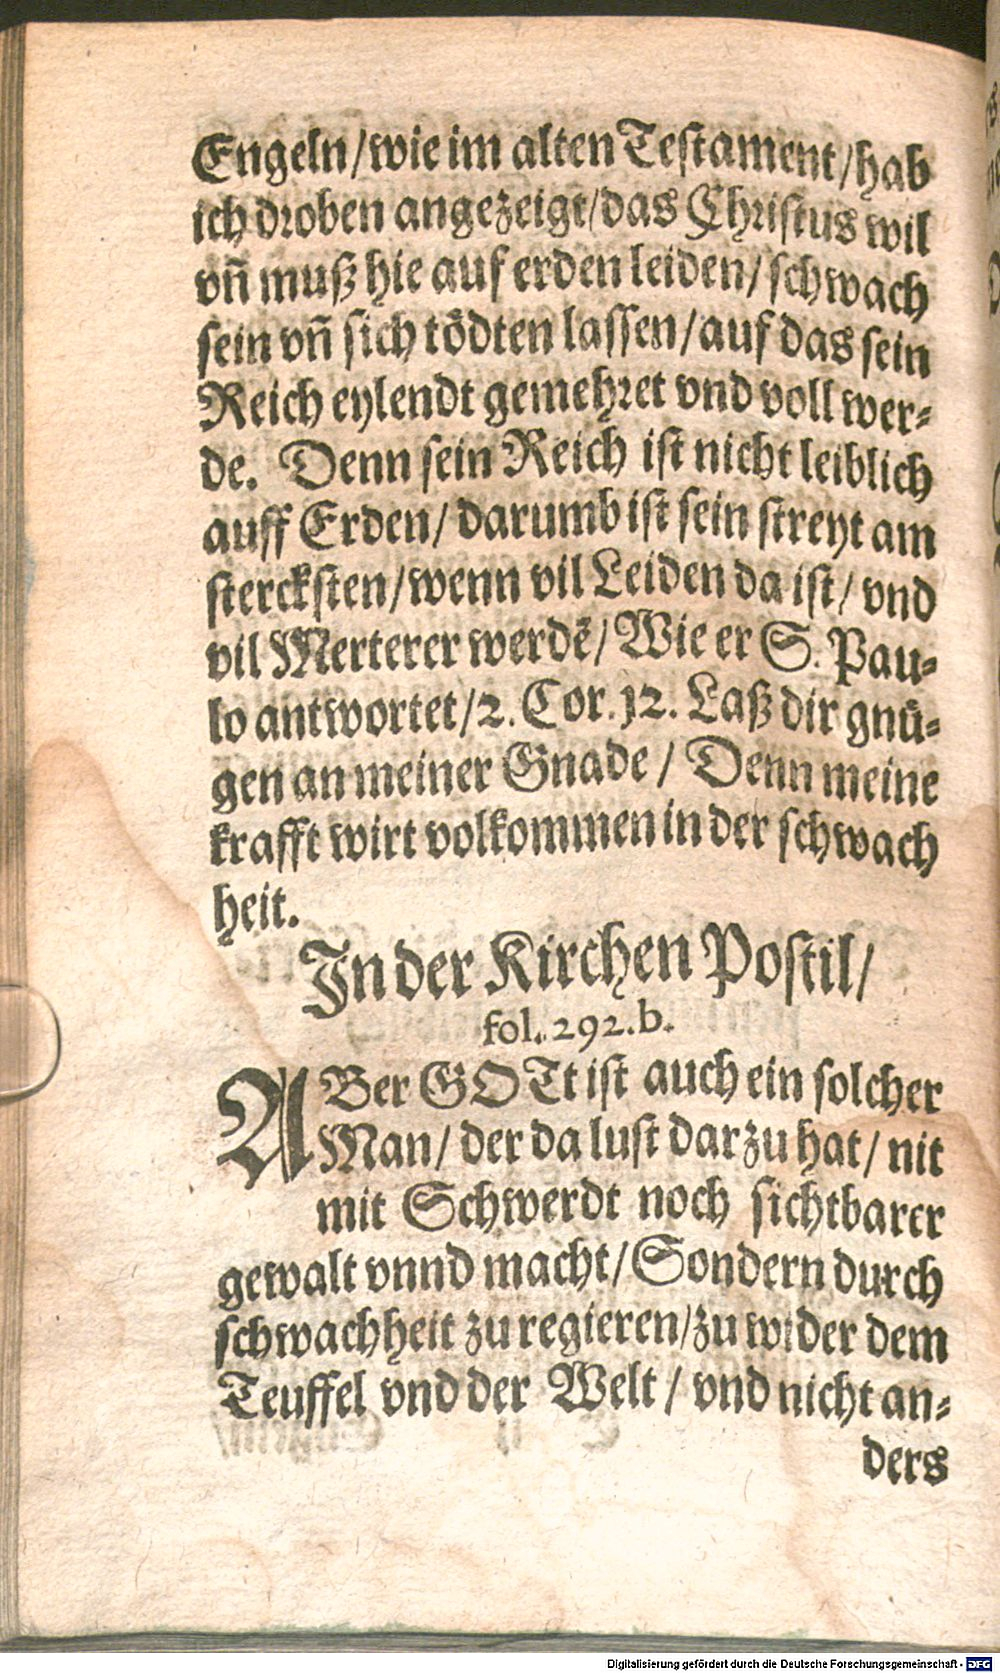 Engeln/wie im alten Testament/hab
ich droben angezeigt/das Christus wil
vñ muß hie auf erden leiden/schwach
sein vñ sich tödten lassen/auf das sein
Reich eylendt gemehret vnd voll wer⸗
de. Denn sein Reich ist nicht leiblich
auff Erden/darumb ist sein streyt am
stercksten/wenn vil Leiden da ist/vnd
vil Merterer werdẽ/Wie er S. Pau⸗
lo antwortet/2. Cor. 12. Laß dir gnü⸗
gen an meiner Gnade/Denn meine
krafft wirt volkommen in der schwach
heit.
In der Kirchen Postil/
fol. 292. b.
ABer GOTt ist auch ein solcher
Man/der da lust darzu hat/nit
mit Schwerdt noch sichtbarer
gewalt vnnd macht/Sondern durch
schwachheit zu regieren/zu wider dem
Teuffel vnd der Welt/vnd nicht an⸗
ders
Digitalisierung gefördert durch die Deutsche Forschungsgemeinschaft - DFG